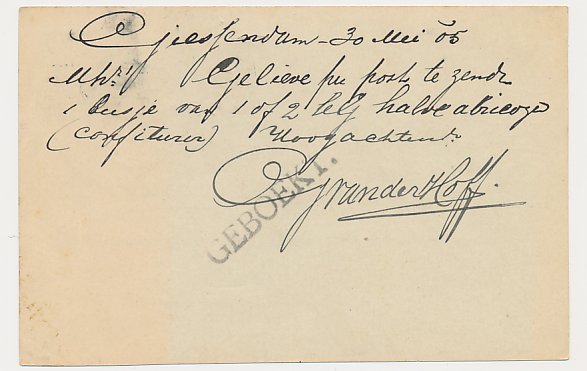 Giessendam - 30 Mei 05
Mhr! Gelieve per post te zende
1 busje van 1 of 2 kelg halve abricoze
(confituren) Hoogachtend
GEBOEKT.
G J van der Hoff.